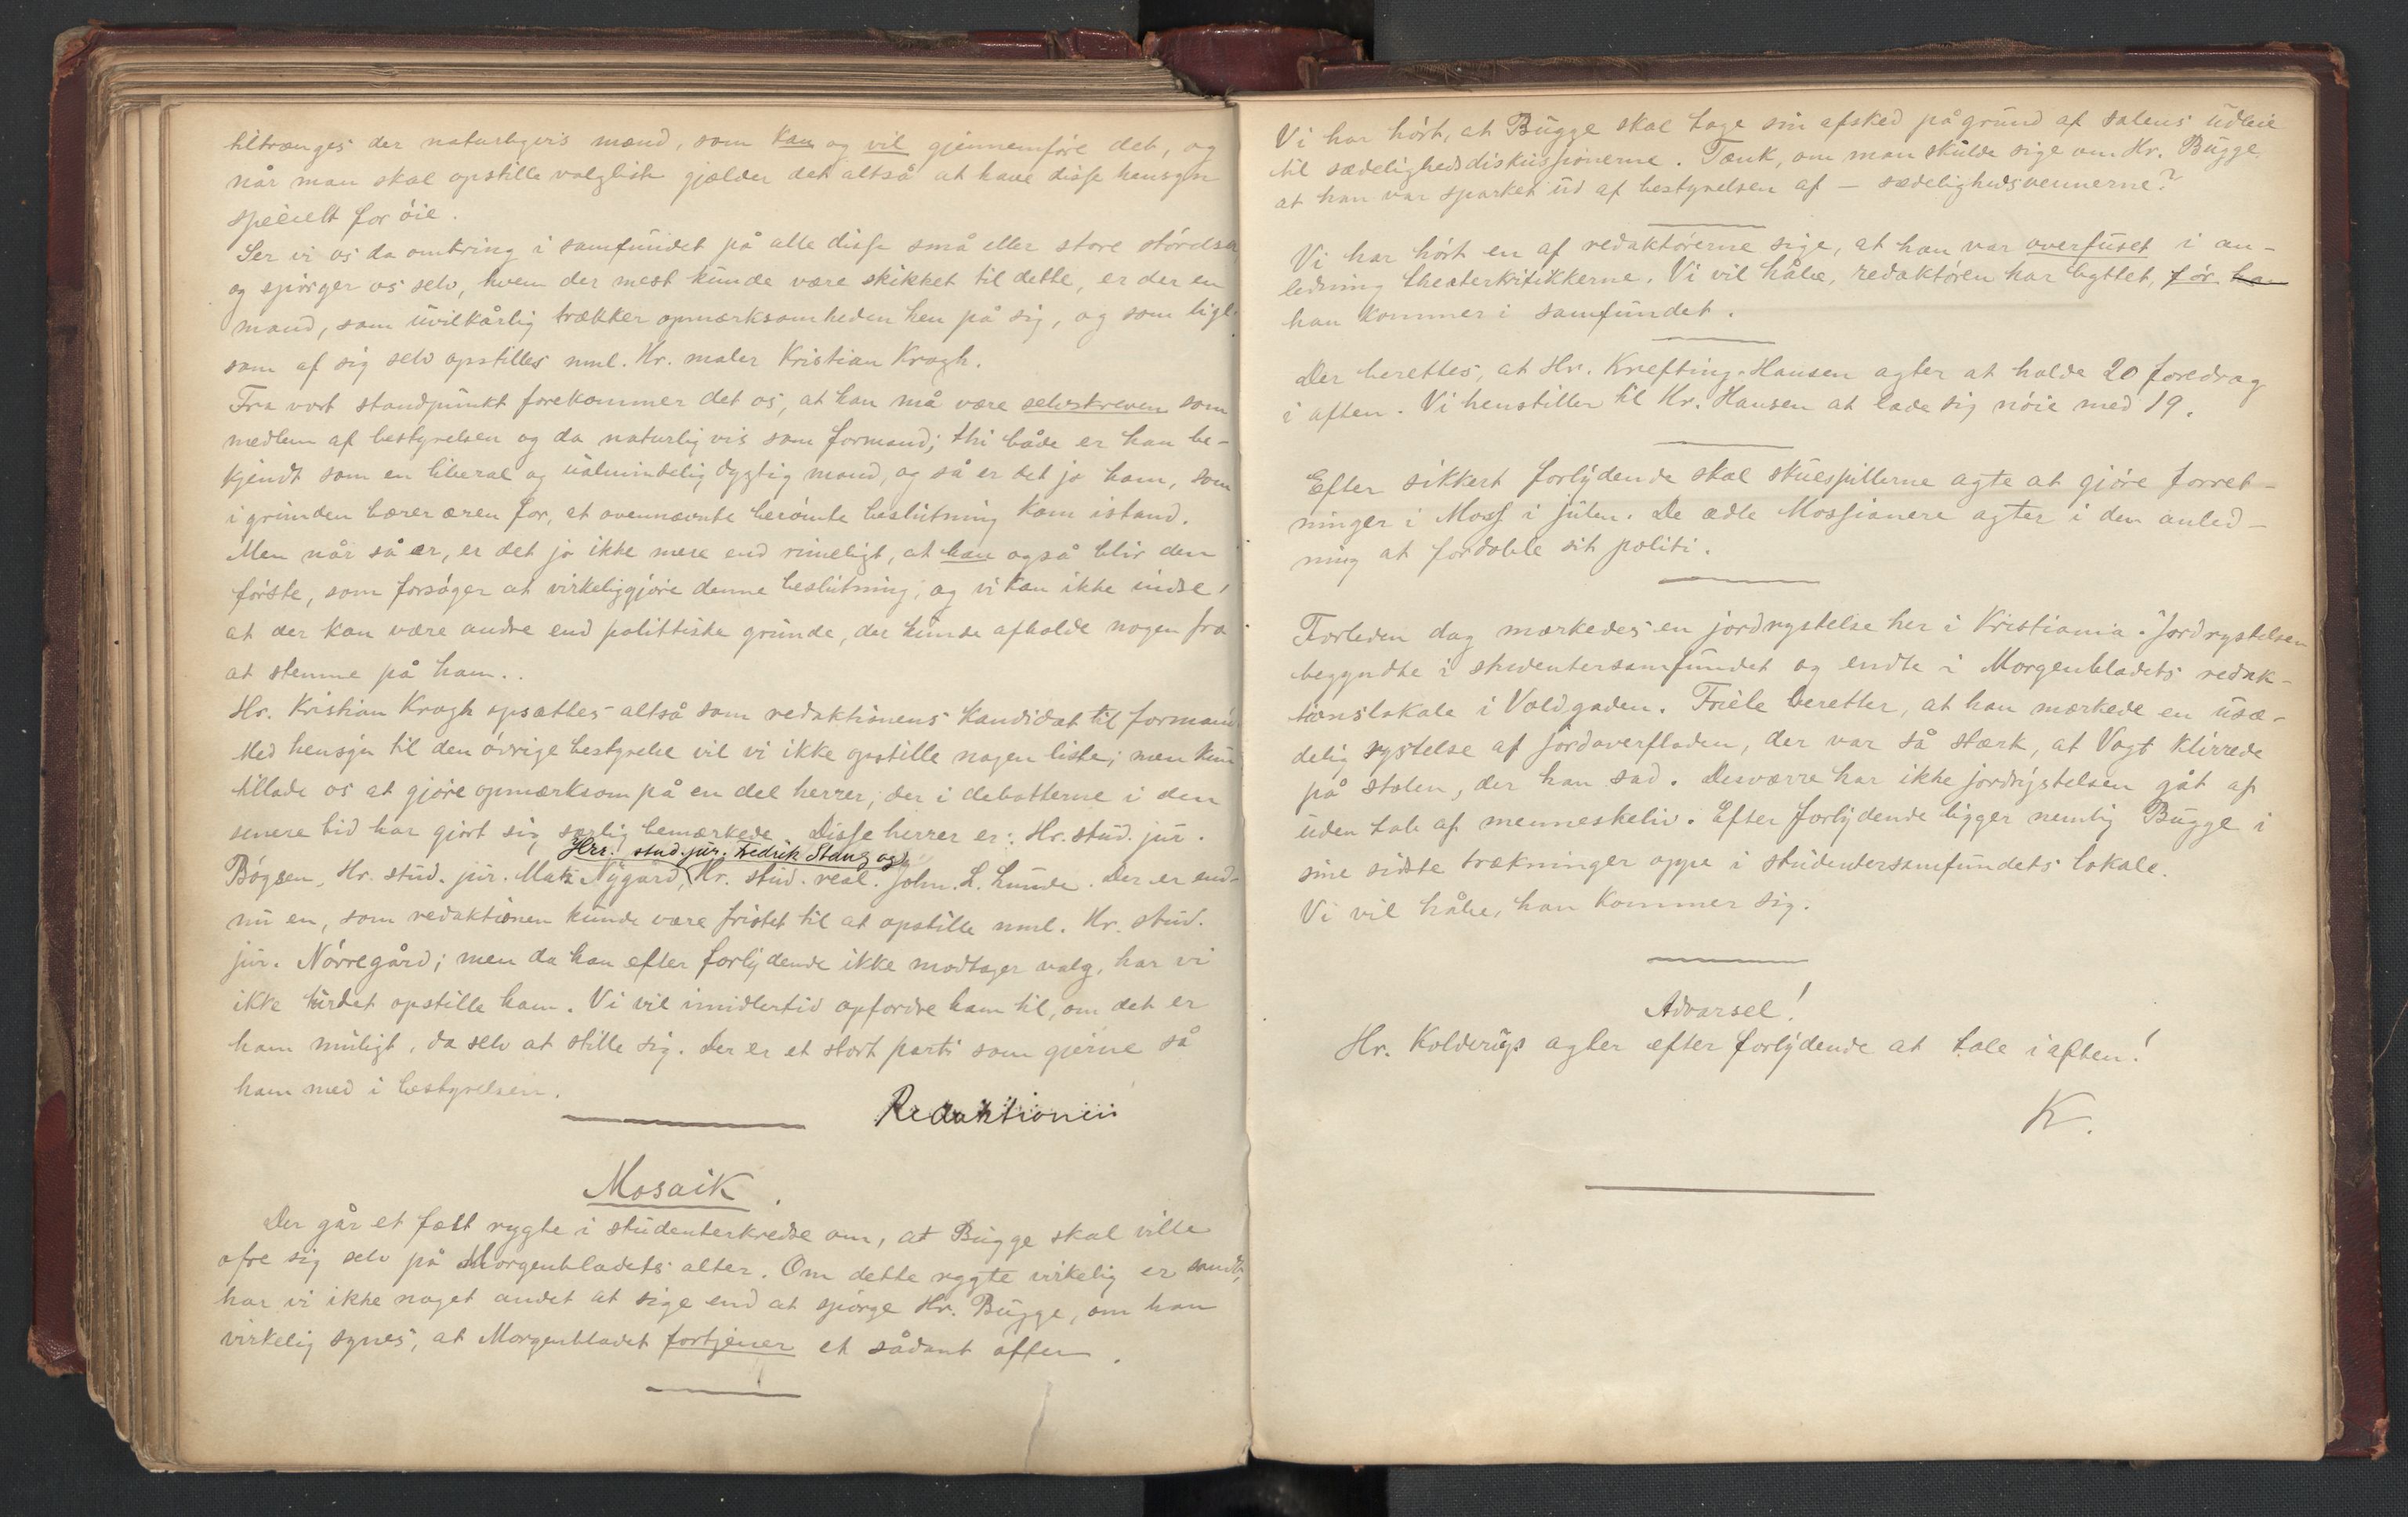 tiltrænges der naturligvis mænd, som kan og vil gjennemføre det, og
når man skal opstille valgliste gjælder det altså at have disse hensyn
specielt for øie.
Ser vi os da omkring i samfundet på alle disse små eller store størrelser
og spørger os selv, hvem der mest kunde være skikket til dette, er der en
mand, som uvilkårlig trækker opmærksomheden hen på sig, og som lige
som af sig selv opstilles nml. Hr. maler Kristian Krogh.
Fra vort standpunkt forekommer det os, at han må være selvskreven som
medlem af bestyrelsen og da naturligvis som formand; thi både er han be-
kjendt som en liberal og ualmindelig dygtig mand, og så er det jo ham, som
i grunden bærer æren for, at ovennævnte berømte beslutning kom istand.
Men når så er, er det jo ikke mere end rimeligt, at han også blir den
første, som forsøger at virkeliggjøre denne beslutning, og vi kan ikke indse,
at der kan være andre end polittiske grunde, der kunde afholde nogen fra
at stemme på ham..
Hr. Kristian Krogh opsættes altså som redaktionens kandidat til formand
Med hensyn til den øvrige bestyrelse vil vi ikke opstille nogen liste; men kun
tillade os at gjøre opmærksom på en del herrer, der i debatterne i den
senere tid har gjort sig særlig bemærkede. Disse herrer er: Hr. stud. jur.
Hrr. stud. jur. Fredrik Stang og
Bøgsen, Hr. stud. jur. Mats Nygård, Hr. stud. real. John. L. Lunde. Der er end-
nu en, som redaktionen kunde være fristet til at opstille nml. Hr. stud.
jur. Nørregård; men da han efter forlydende ikke modtager valg, har vi
ikke turdet opstille ham. Vi vil imidlertid opfordre ham til, om det er
ham muligt, da selv at stille sig. Der er et stort parti som gjerne så
ham med i bestyrelsen.
Redaktionen
Mosaik.
Der går et fælt rygte i studenterkredse om, at Bugge skal ville
ofre sig selv på Morgenbladets alter. Om dette rygte virkelig er sandt,
har vi ikke noget andet at sige end at spørge Hr. Bugge, om han
virkelig synes, at Morgenbladet fortjener et sådant offer.
Vi har hørt, at Bugge skal tage sin afsked på grund af salens udleie
til sædelighedsdiskussionerne. Tænk, om man skulde sige om Hr. Bugge,
at han var sparket ud af bestyrelsen af – sædelighedsvennerne?
Vi har hørt en af redaktørerne sige, at han var overfuset i an-
ledning theaterkritikkerne. Vi vil håbe, redaktøren har lyttet, før han
han kommer i samfundet.
Der berettes, at Hr. Krefting-Hansen agter at holde 20 foredrag
i aften. Vi henstiller til Hr. Hansen at lade sig nøie med 19.
Efter sikkert forlydende skal skuespillerne agte at gjøre forret-
ninger i Moss i julen. De ædle Mossianere agter i den anled-
ning at fordoble sit politi.
Forleden dag mærkedes en jordrystelse her i Kristiania. Jordrystelsen
begyndte i studentersamfundet og endte i Morgenbladets redak-
tionslokale i Voldgaden. Friele beretter, at han mærkede en usæ-
delig rystelse af jordoverfladen, der var så stærk, at Vogt klirrede
på stolen, der han sad. Desværre har ikke jordrystelsen gåt af
uden tab af menneskeliv. Efter forlydende ligger nemlig Bugge i
sine sidste trækninger oppe i studentersamfundets lokale.
Vi vil håbe, han kommer sig.
Advarsel!
Hr. Kolderup agter efter forlydende at tale i aften!
K.